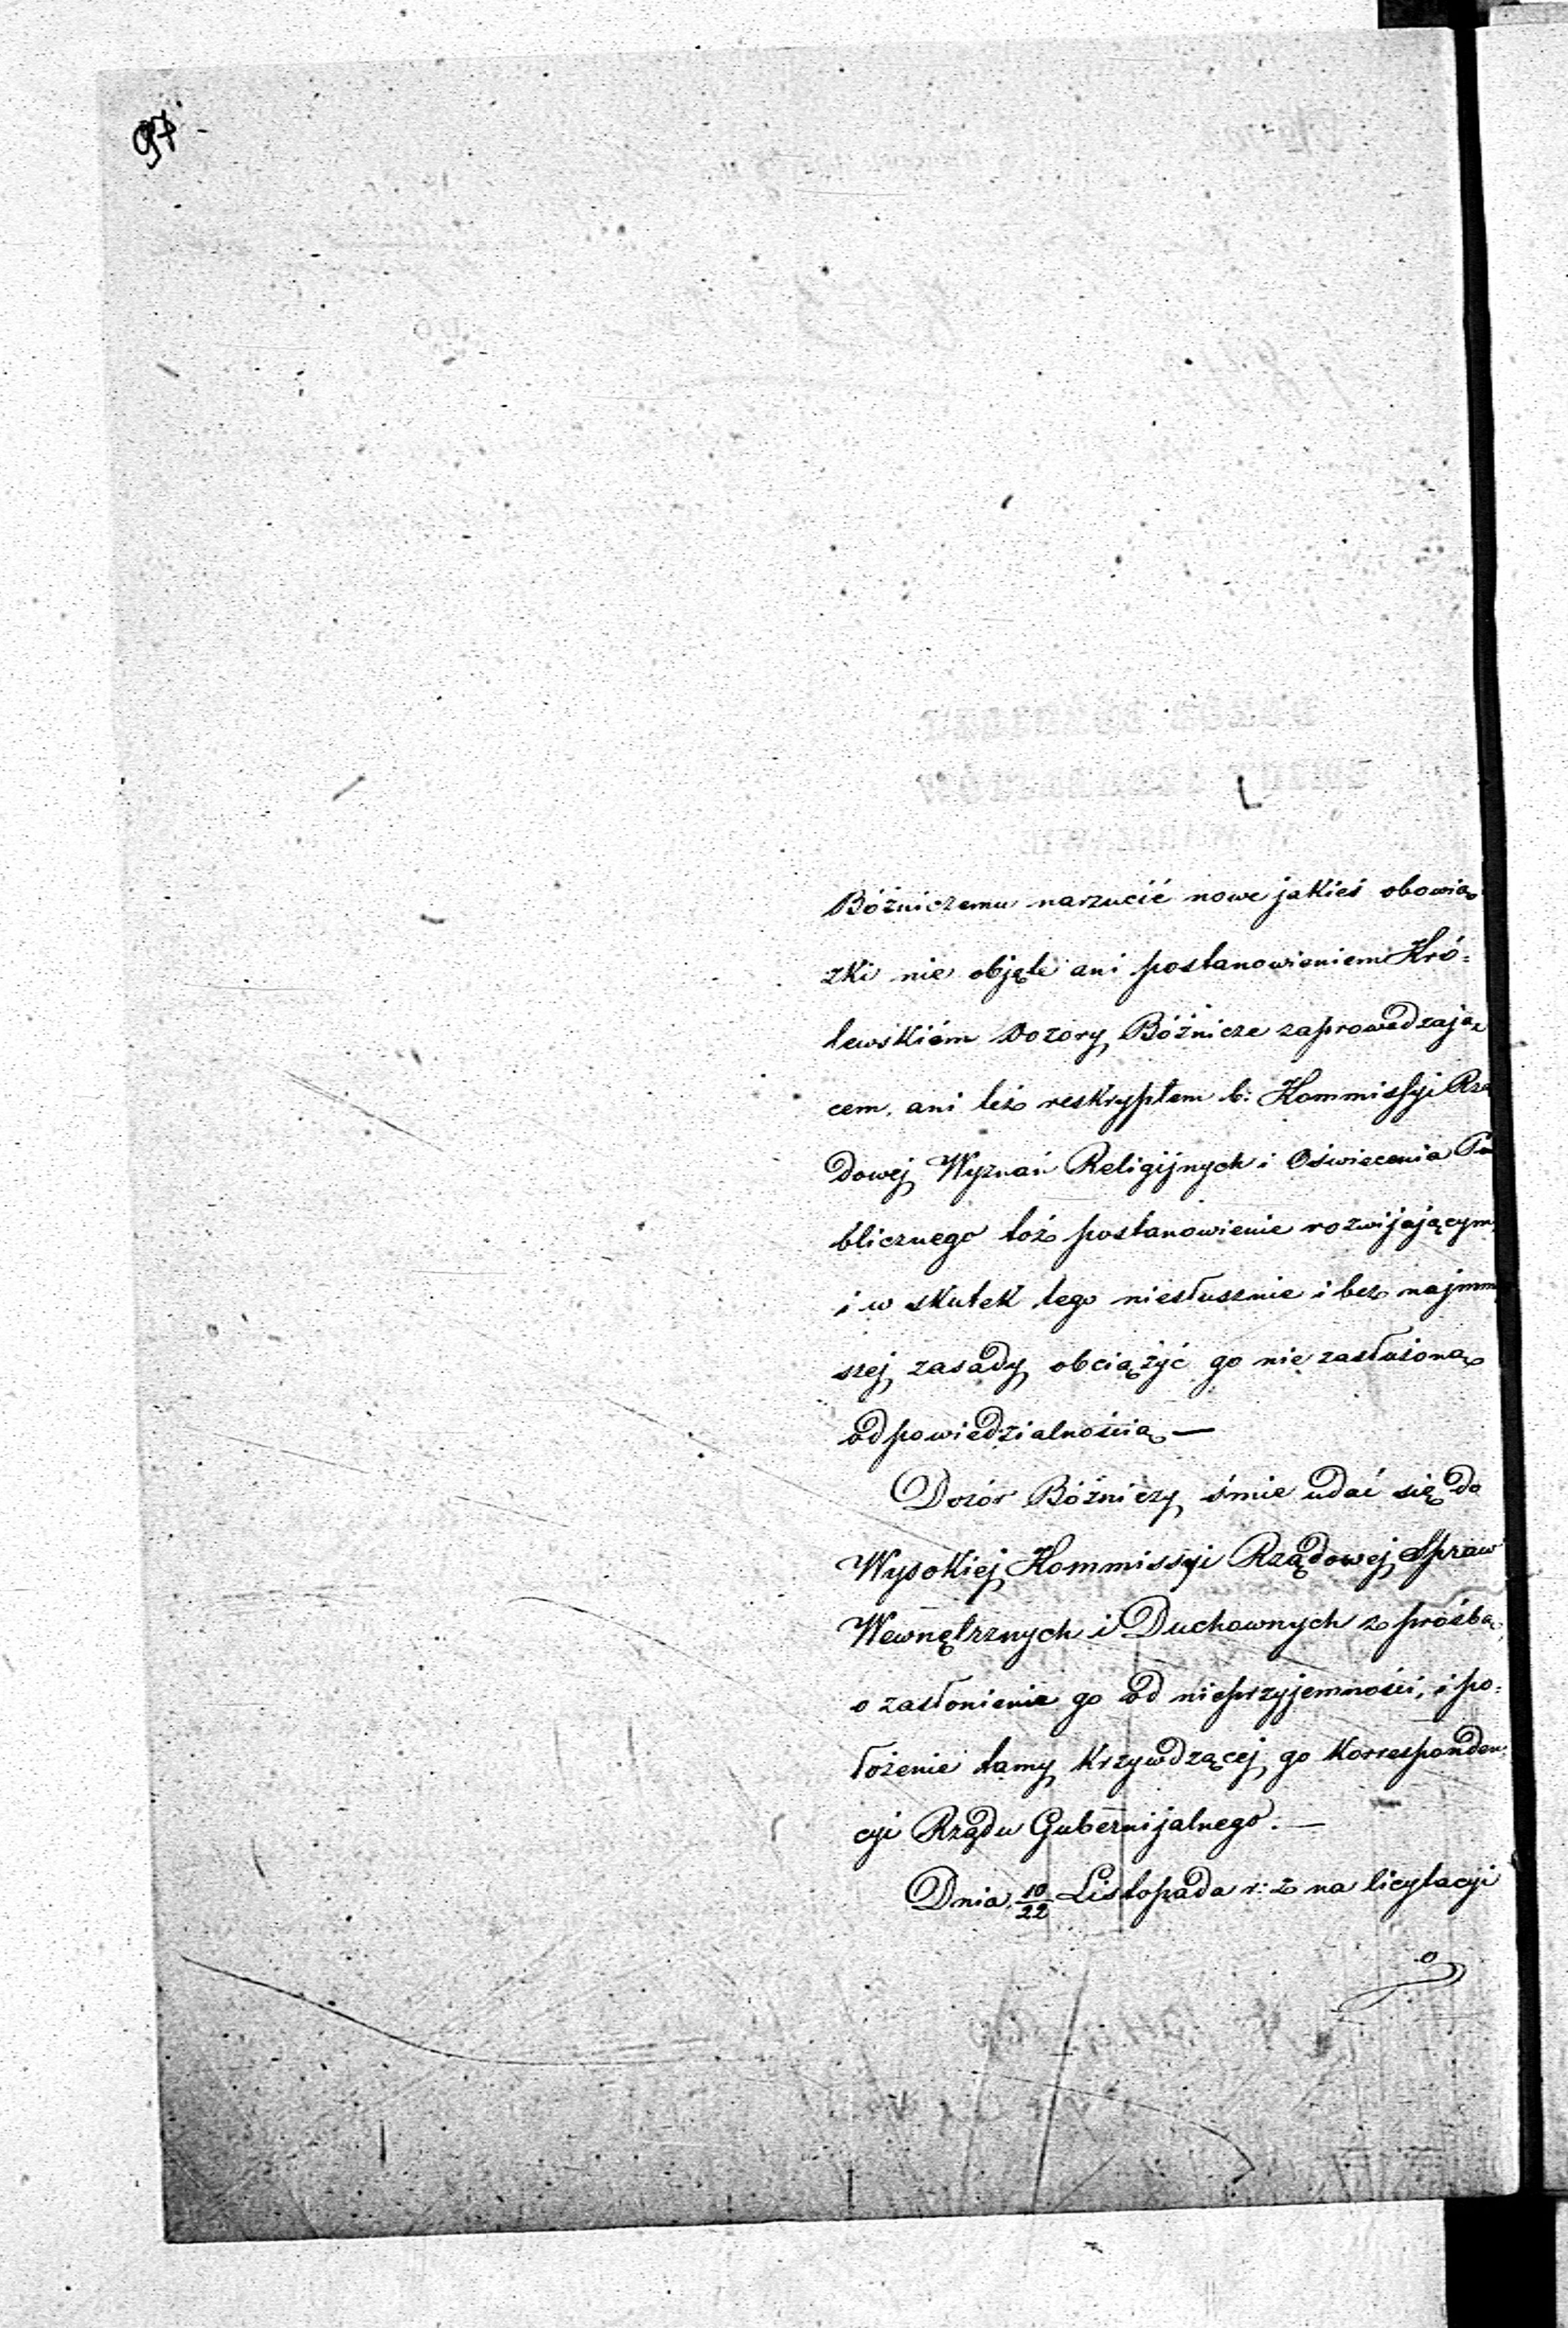 97
Bóźniczemu narzucić nowe jakieś obowią
zki nie objęte ani postanowieniem Kró=
lewskiém Dozory Bóźnicze zaprowadzają
cem, ani też reskryptem b: Kommissyi Rzą
dowej Wyznań Religijnych i Oświecenia Pu
blicznego toż postanowienie rozwijającym
i w skutek tego niesłusznie i bez najmn
szej zasady obciążyć go nie zasłużoną
odpowiedzialnością —
Dozór Bóźniczy śmie udać się do
Wysokiej Kommissyi Rządowej Spraw
Wewnętrznych i Duchownych z prośbą
o zasłonienie go od nieprzyjemności, i po=
łożenie tamy krzywdzącej go korresponden=
cyi Rządu Gubernijalnego. —
Dnia 10/22 Listopada r: z na licytacyi